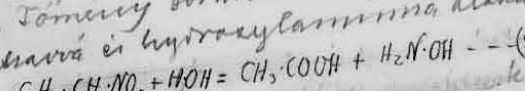 Tömény
savvá és hydroxylaminná
CH₃·CH₂·NO₂ + HOH = CH₃·COOH + H₂N·OH - - - (